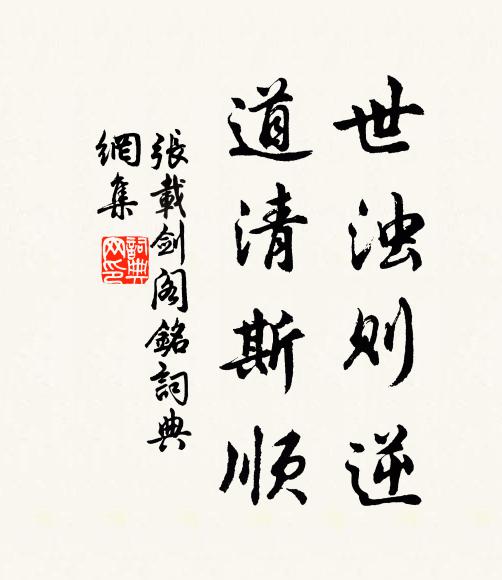 世浊则逆
道清斯顺
張載剑阁銘詞典
網集
詞典
网印